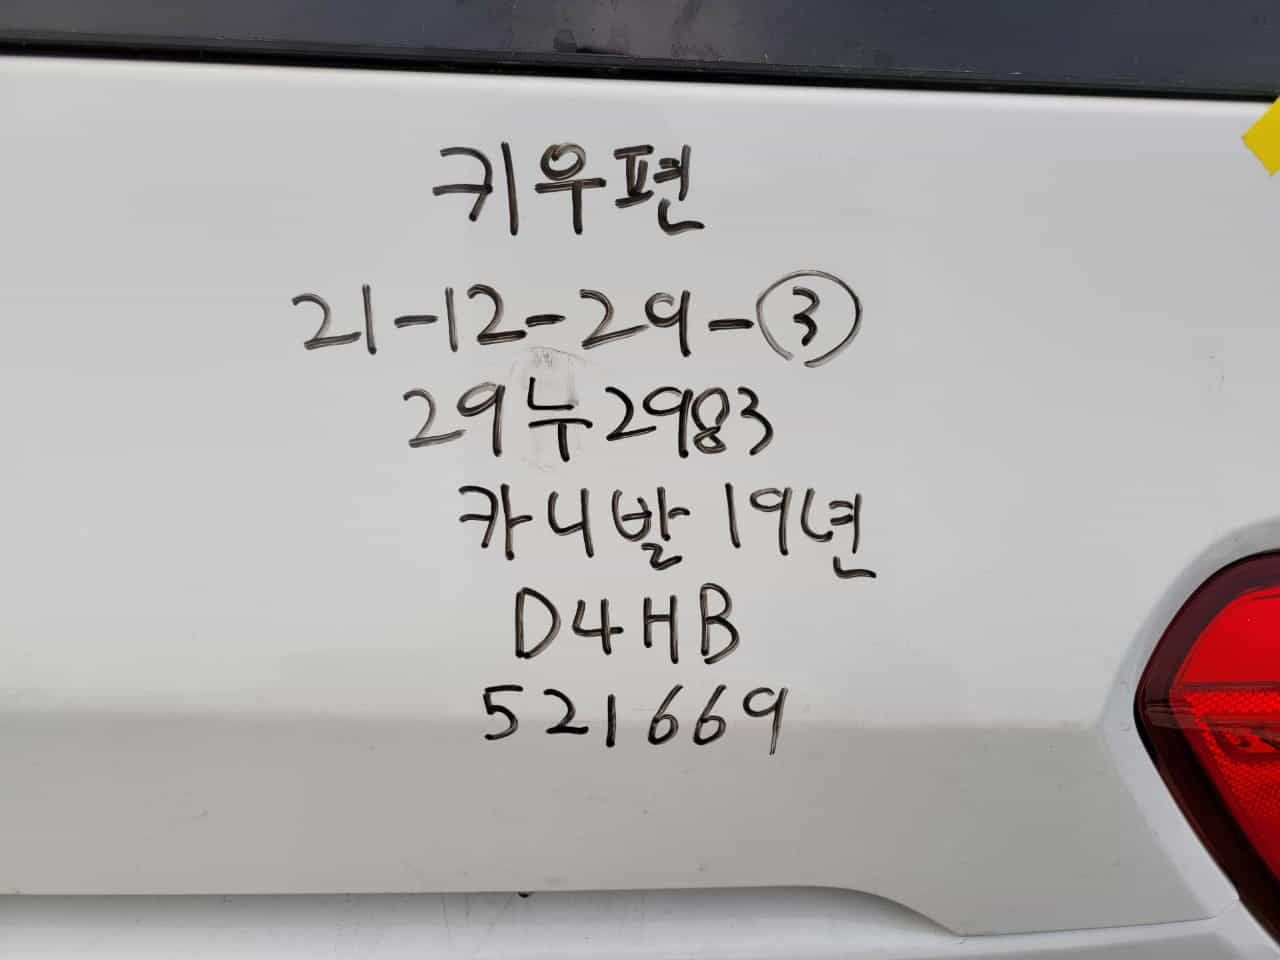 키우편
21-12-29-③
29누2983
카니발 19년
D4HB
521669